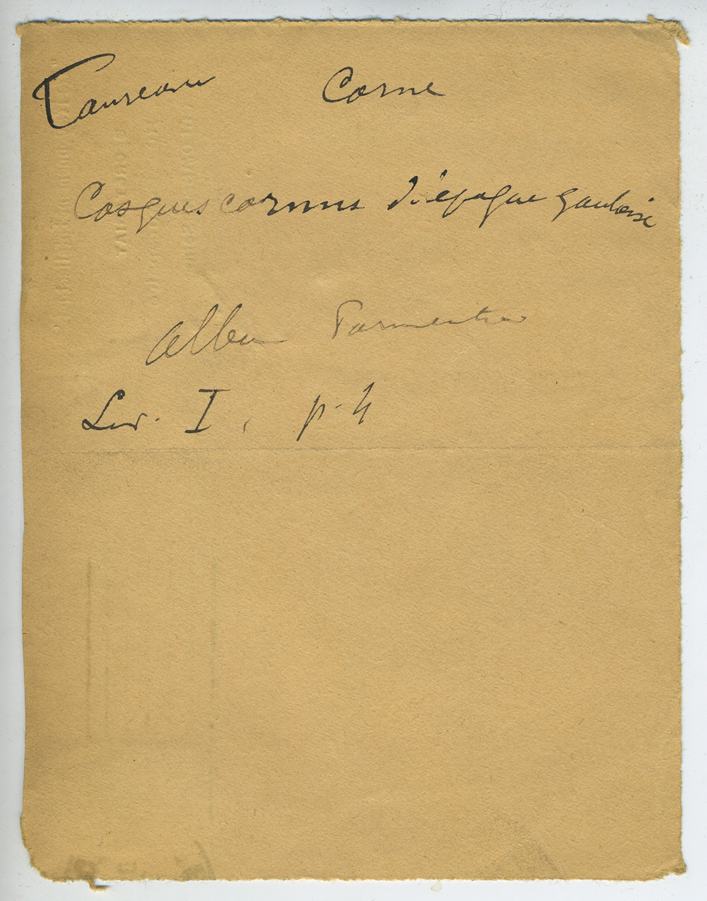 Taureau Corne
Casques cornus d'époque gauloise
Album Parmentier
Liv. I, p. 4